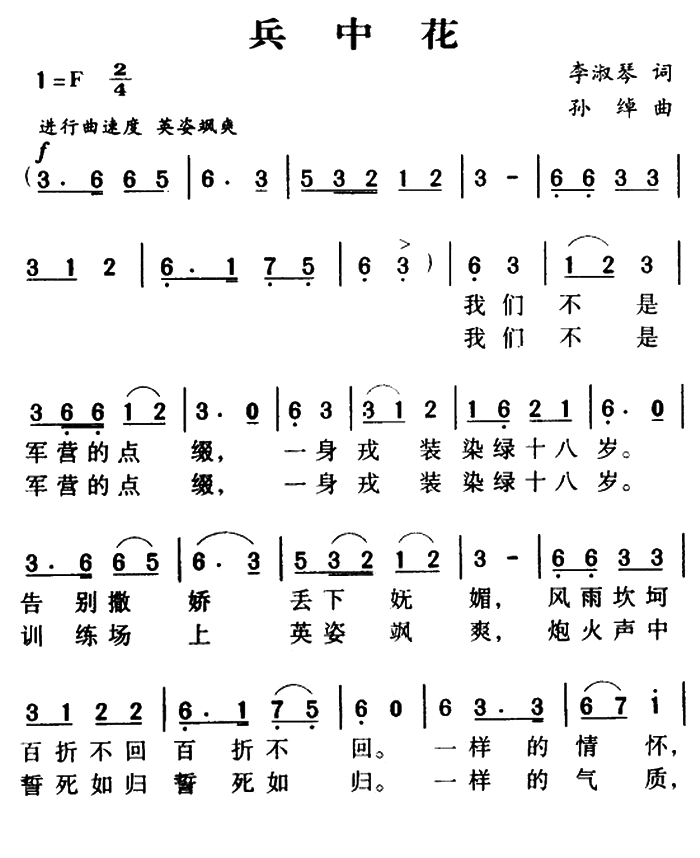 兵中花
1=F 2/4
李淑琴 词
孙绰 曲
进行曲速度 英姿飒爽
f
( 3. 6 6 5 | 6. 3 | 5 3 2 1 2 | 3 - | 6 6 3 3 |
3 1 2 | 6. 1 7 5 | 6 3 ) | 6 3 | 1 2 3 |
我们不是
我们不是
3 6 6 1 2 | 3. 0 | 6 3 | 3 1 2 | 1 6 2 1 | 6. 0 |
军营的点缀，一身戎装染绿十八岁。
军营的点缀，一身戎装染绿十八岁。
3. 6 6 5 | 6. 3 | 5 3 2 1 2 | 3 - | 6 6 3 3 |
告别撒娇丢下妩媚，风雨坎坷
训练场上英姿飒爽，炮火声中
3 1 2 2 | 6. 1 7 5 | 6 0 | 6 3. 3 | 6 7 i |
百折不回百折不回。一样的情怀，
誓死如归誓死如归。一样的气质，